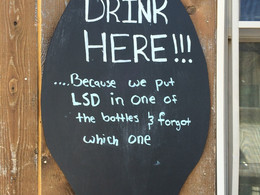 DRINK
HERE!!!
....Because we put
LSD in one of
the bottles & forgot
which one